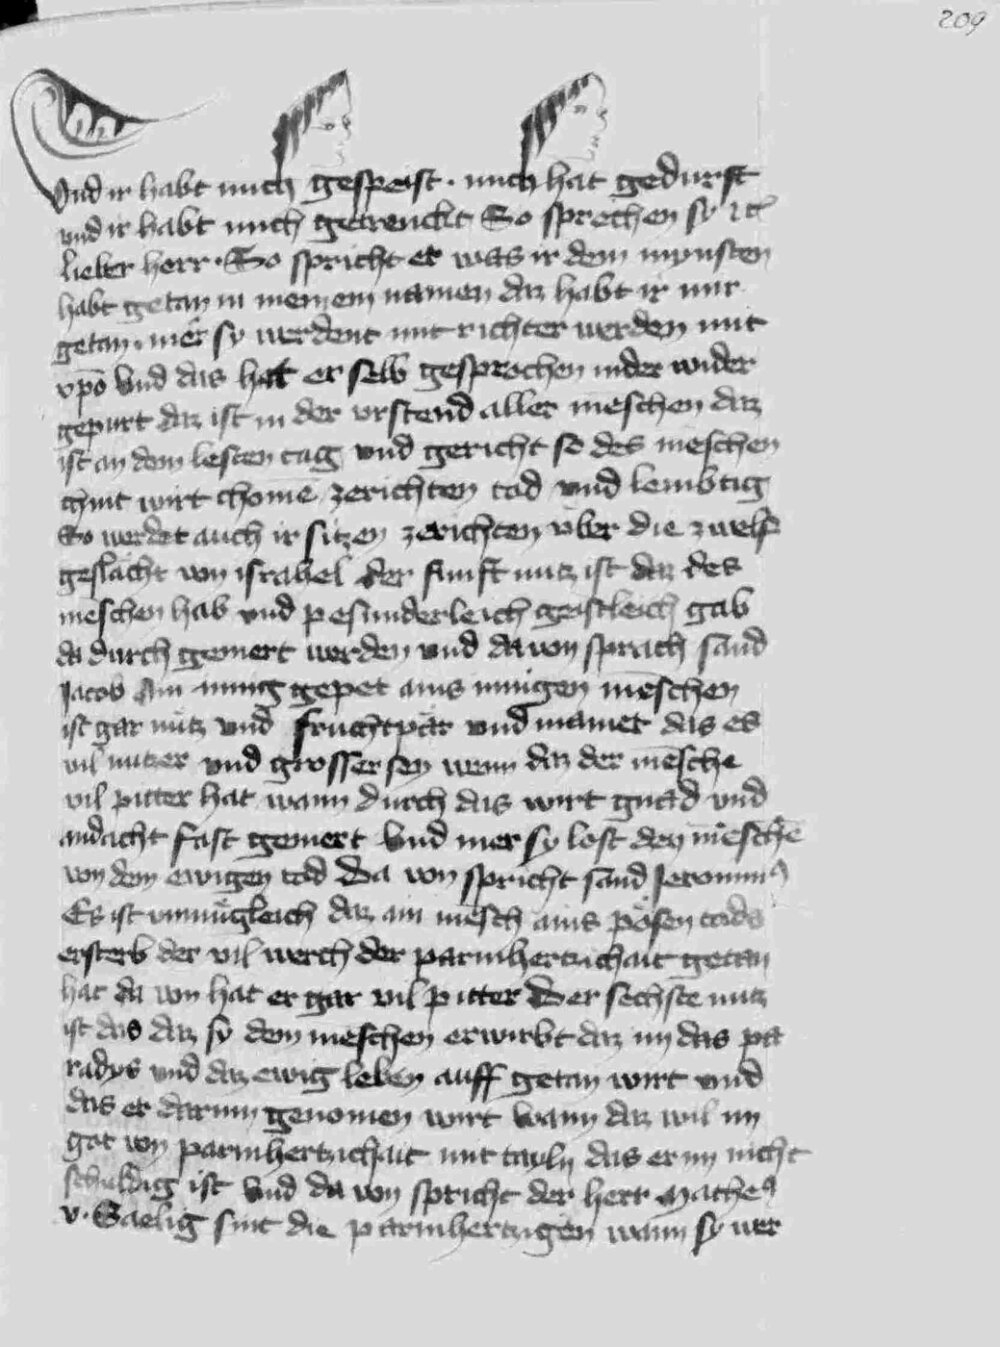 209
Vnd ir habt mich gespeist · mich hat gedurst
vnd ir habt mich getrenckt So sprechen sy etc
lieber herr · So spricht er was ir dem mynsten
habt getan in meinem namen daz habt ir mir
getan · mer sy werdent mit richter werden mit
xp̄o Vnd das hat er selb gesprochen in der wider
gepurt daz ist in der vrstend aller mēschen daz
ist an dem lesten tag vnd gericht so des mēschen
chint wirt chomē zerichten tod vnd lembtig
So werdet auch ir siczen zerichten vber die zwelf
geslächt von israhel der funft nutz ist daz des
mēschen hab vnd pesunderleich geistleich gab
da durch gemert werden vnd da von sprach sand
Jacob Ain innig gepet ains innigen mēschen
ist gar nütz vnd fruchtpär vnd mainet das es
vil nutzer vnd grosser sey wenn daz der mēsche
vil pitter hat wann durch das wirt gnad vnd
andacht fast gemert Vnd mer sy lost den mēschē
von dem ewigen tod Da von spricht sand Jeronimꝰ
Es ist vnmügleich daz ain mēsch ains pösen tods
ersterb der vil werch der parmhertzichait getan
hat da von hat er gar vil pitter Der sechste nutz
ist das daz sy dem mēschen erwirbt daz im das pa
radys vnd daz ewig leben auff getan wirt vnd
das er darinn genomen wirt wann daz wil im
got von parmhertzichait mit tayln das er im nicht
schuldig ist Vnd da von spricht der herr Matheꝰ
v · Saelig sint die parmhertzigen wann sy wer